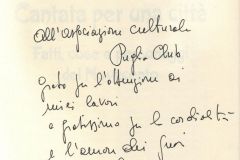 Cantata per una città
all'associazione culturale
Puglia Club
grato per l'attenzione ai
miei lavori
e gratissimo per la cordialità
e l'amore dei suoi